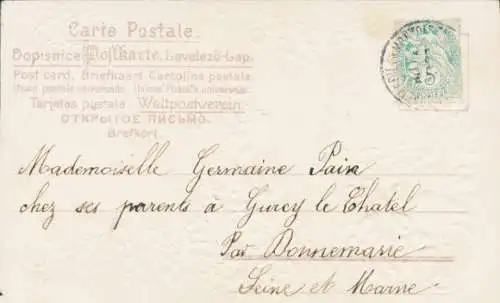 Carte Postale.
Dopisnice Postkarte. Levelező-Lap.
Post card. Briefkaart Cartolina postale
Union postale universelle.
Tarjetas postale Weltpostverein.
ОТКРЫТОЕ ПИСЬМО.
Brefkort.
5
Mademoiselle Germaine Pain
chez ses parents à Gurcy le Chatel
Par Donnemarie
Seine et Marne